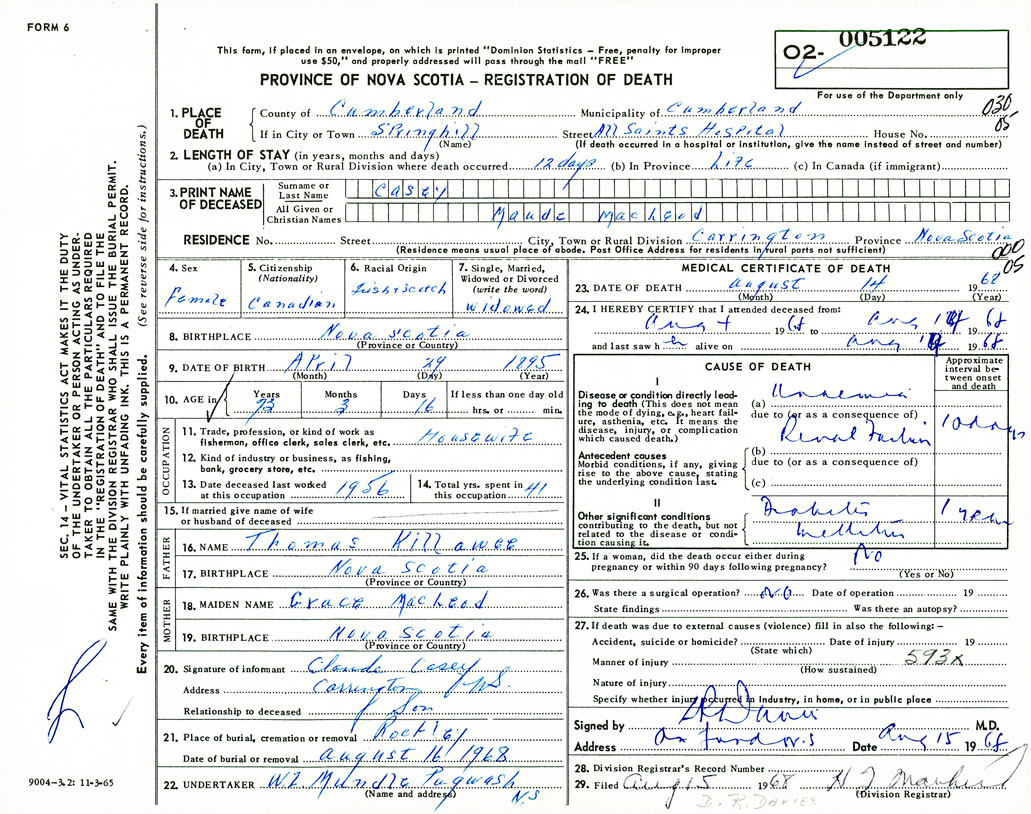 FORM 6
This form, if placed in an envelope, on which is printed "Dominion Statistics – Free, penalty for improper
use $50," and properly addressed will pass through the mail "FREE"
PROVINCE OF NOVA SCOTIA – REGISTRATION OF DEATH
02- 005122
For use of the Department only
030
05
1. PLACE OF DEATH County of Cumberland Municipality of Cumberland
If in City or Town Springhill Street All Saints Hospital House No.
(Name) (If death occurred in a hospital or institution, give the name instead of street and number)
2. LENGTH OF STAY (in years, months and days)
(a) In City, Town or Rural Division where death occurred 12 days (b) In Province Life (c) In Canada (if immigrant)
3. PRINT NAME OF DECEASED Surname or Last Name Casey
All Given or Christian Names Maude MacLeod
RESIDENCE No. Street City, Town or Rural Division Carrington Province Nova Scotia
(Residence means usual place of abode. Post Office Address for residents in rural parts not sufficient)
000
05
4. Sex Female
5. Citizenship (Nationality) Canadian
6. Racial Origin Irish & Scotch
7. Single, Married, Widowed or Divorced (write the word) Widowed
8. BIRTHPLACE Nova Scotia
(Province or Country)
9. DATE OF BIRTH April 29 1895
(Month) (Day) (Year)
10. AGE in Years 73 Months 3 Days 16 If less than one day old hrs. or min.
OCCUPATION
11. Trade, profession, or kind of work as fisherman, office clerk, sales clerk, etc. Housewife
12. Kind of industry or business, as fishing, bank, grocery store, etc.
13. Date deceased last worked at this occupation 1956
14. Total yrs. spent in this occupation 41
15. If married give name of wife or husband of deceased
FATHER
16. NAME Thomas Killawee
17. BIRTHPLACE Nova Scotia
(Province or Country)
MOTHER
18. MAIDEN NAME Grace MacLeod
19. BIRTHPLACE Nova Scotia
(Province or Country)
20. Signature of informant Claude Casey
Address Carrington N.S.
Relationship to deceased Son
21. Place of burial, cremation or removal Rockley
Date of burial or removal August 16, 1968
22. UNDERTAKER W.L. Mundle Pugwash N.S
(Name and address)
MEDICAL CERTIFICATE OF DEATH
23. DATE OF DEATH August 14 1968
(Month) (Day) (Year)
24. I HEREBY CERTIFY that I attended deceased from:
Aug 1968 to Aug 14 1968
and last saw her alive on Aug 14 1968
CAUSE OF DEATH
Approximate interval between onset and death
I
Disease or condition directly leading to death (This does not mean the mode of dying, e.g., heart failure, asthenia, etc. It means the disease, injury, or complication which caused death.)
(a) Uraemia
due to (or as a consequence of)
Renal Failure 10 days
Antecedent causes
Morbid conditions, if any, giving rise to the above cause, stating the underlying condition last.
(b)
due to (or as a consequence of)
(c)
II
Other significant conditions contributing to the death, but not related to the disease or condition causing it.
Diabetes Mellitus 1 year
25. If a woman, did the death occur either during pregnancy or within 90 days following pregnancy? No
(Yes or No)
26. Was there a surgical operation? No Date of operation 19
State findings Was there an autopsy?
27. If death was due to external causes (violence) fill in also the following: –
Accident, suicide or homicide? Date of injury 19
(State which)
Manner of injury 593x
(How sustained)
Nature of injury
Specify whether injury occurred in Industry, in home, or in public place
Signed by DR Davies M.D.
Address Oxford N.S Date Aug 15 1968
28. Division Registrar's Record Number
29. Filed Aug 15 1968
(Division Registrar)
D. R. DAVIES
SEC. 14 – VITAL STATISTICS ACT MAKES IT THE DUTY
OF THE UNDERTAKER OR PERSON ACTING AS UNDER-
TAKER TO OBTAIN ALL THE PARTICULARS REQUIRED
IN THE "REGISTRATION OF DEATH" AND TO FILE THE
SAME WITH THE DIVISION REGISTRAR WHO SHALL ISSUE THE BURIAL PERMIT.
WRITE PLAINLY WITH UNFADING INK. THIS IS A PERMANENT RECORD.
Every item of information should be carefully supplied. (See reverse side for instructions.)
9004–3.2: 11-3-65